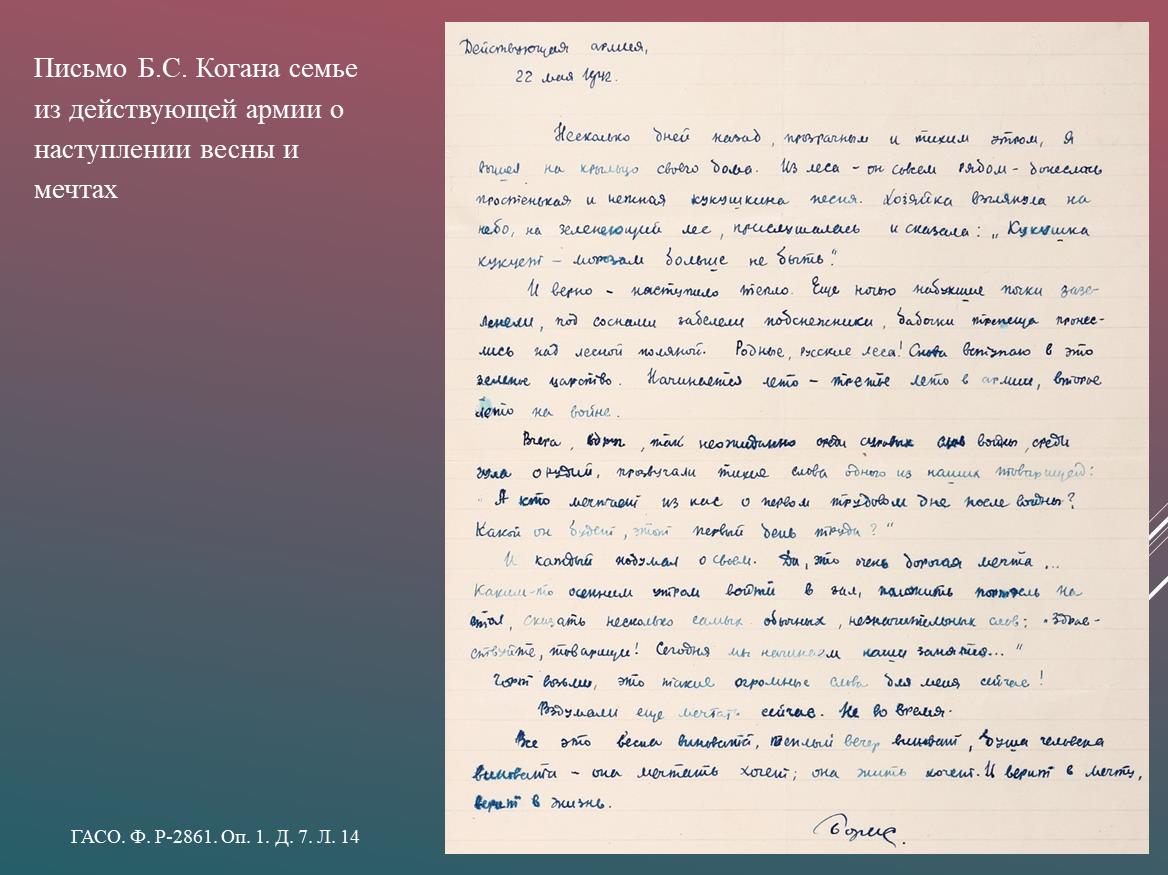 Письмо Б.С. Когана семье
из действующей армии о
наступлении весны и
мечтах
Действующая армия,
22 мая 1942.
Несколько дней назад, прозрачным и тихим утром, я
вышел на крыльцо своего дома. Из леса – он совсем рядом – донеслась
простенькая и нежная кукушкина песня. Хозяйка взглянула на
небо, на зеленеющий лес, прислушалась и сказала: „Кукушка
кукует – морозам больше не быть."
И верно – наступило тепло. Еще ночью набухшие почки зазе-
ленели, под соснами забелели подснежники, бабочки трепеща пронес-
лись над лесной поляной. Родные, русские леса! Снова вступаю в это
зеленое царство. Начинается лето – третье лето в армии, второе
лето на войне.
Вчера, вдруг, так неожиданно среди суровых слов войны, среди
гула орудий, прозвучали тихие слова одного из наших товарищей:
"А кто мечтает из нас о первом трудовом дне после войны?
Какой он будет, этот первый день труда?"
И каждый подумал о своем. Да, это очень дорогая мечта...
Каким-то осенним утром войти в зал, положить портфель на
стол, сказать несколько самых обычных, незначительных слов: "Здрав-
ствуйте, товарищи! Сегодня мы начинаем наши занятия..."
Чорт возьми, это такие огромные слова для меня сейчас!
Вздумали еще мечтать сейчас. Не во время.
Все это весна виновата, теплый вечер виноват, душа человека
виновата – она мечтать хочет; она жить хочет. И верит в мечту,
верит в жизнь.
Борис.
ГАСО. Ф. Р-2861. Оп. 1. Д. 7. Л. 14